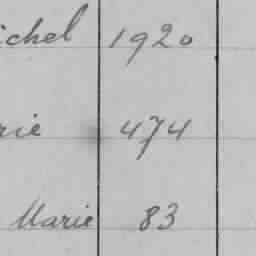 ichel 1920
rie 474
Marie 83